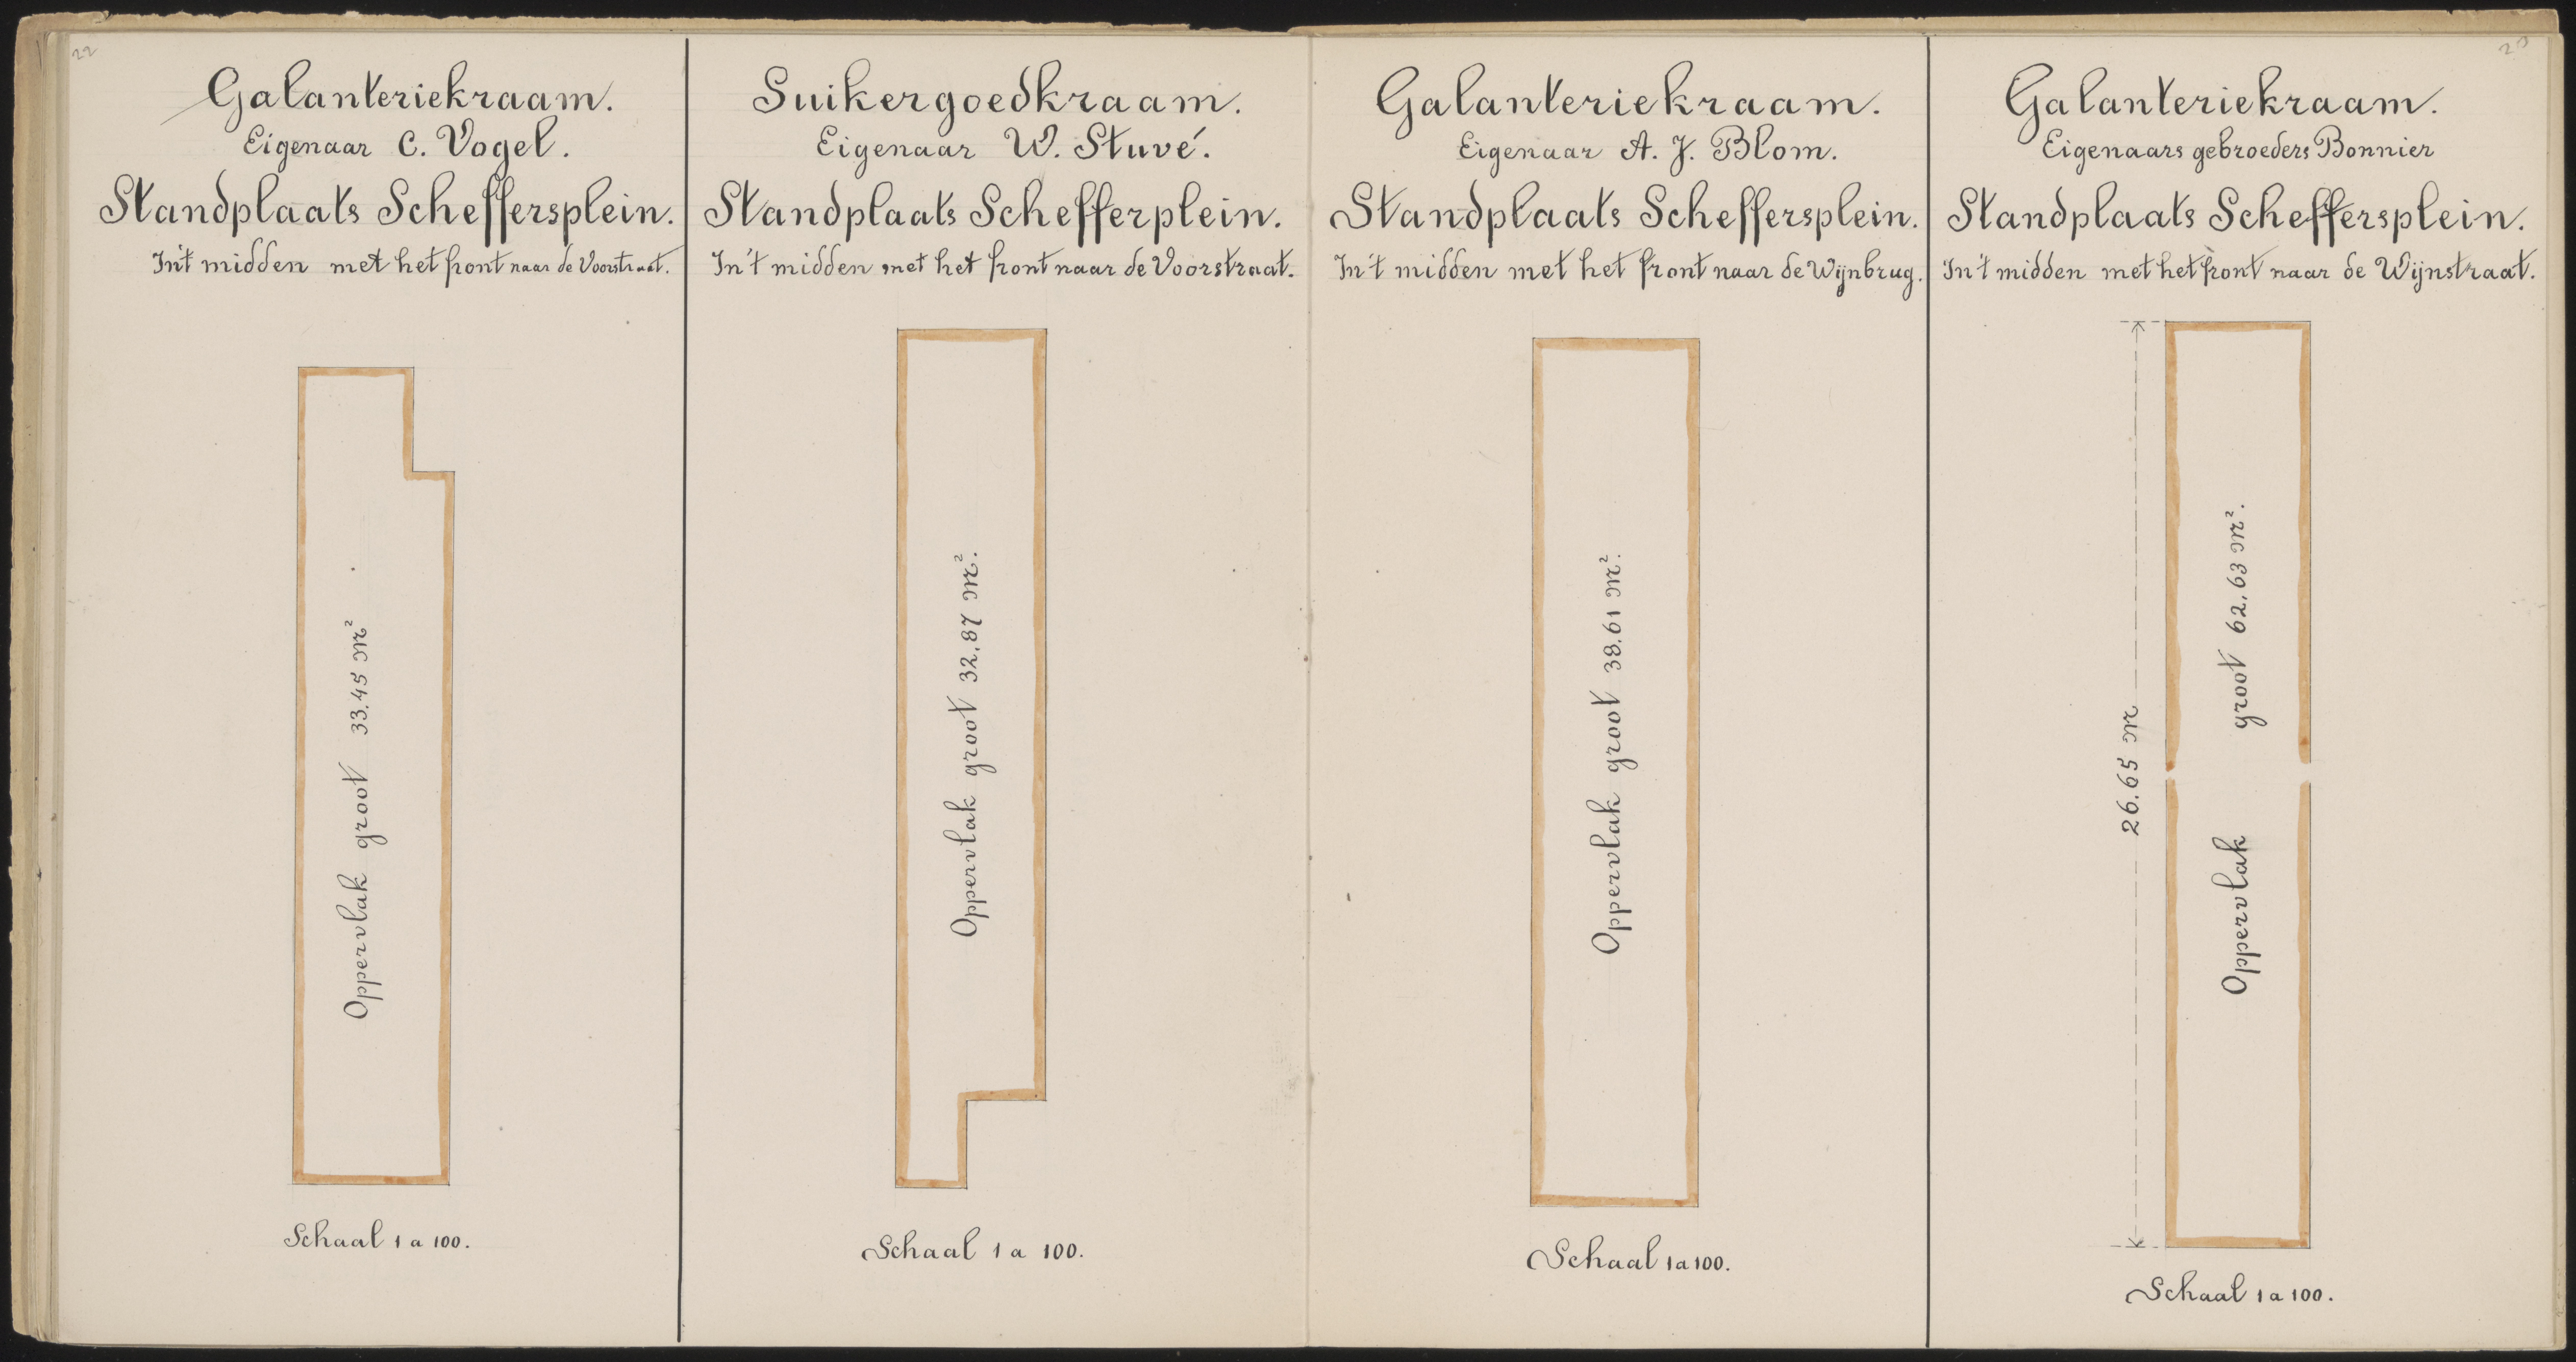 22
Galanteriekraam.
Eigenaar C. Vogel.
Standplaats Scheffersplein.
In't midden met het front naar de Voorstraat.
Oppervlak groot 33.45 M²
Schaal 1 a 100.
Suikergoedkraam.
Eigenaar W. Stuvé.
Standplaats Schefferplein.
In't midden met het front naar de Voorstraat.
Oppervlak groot 32,87 M².
Schaal 1 a 100.
Galanteriekraam.
Eigenaar A. J. Blom.
Standplaats Scheffersplein.
In't midden met het front naar de Wijnbrug.
Oppervlak groot 38.61 M².
Schaal 1 a 100.
23
Galanteriekraam.
Eigenaars gebroeders Bonnier
Standplaats Scheffersplein.
In't midden met het front naar de Wijnstraat.
26.65 M
Oppervlak groot 62,63 M².
Schaal 1 a 100.